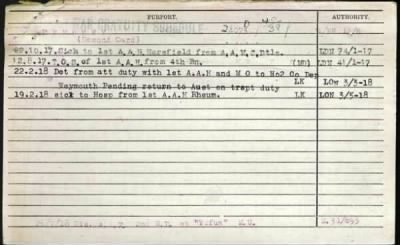 PURPORT. AUTHORITY.
WAR GRATUITY SCHEDULE
(Second Card)
.10.17. Sick to 1st A.A.H. Harefield from A.A.M.C. Dtls. LDN 74/1-17
12.8.17. T.O.S. of 1st A.A.H. from 4th Bn. LDN 41/1-17
22.2.18 Det from att duty with 1st A.A.H and M O to No2 Co Dep
Weymouth Pending return to Aust on trspt duty LK LOW 3/3-18
19.2.18 sick to Hosp from 1st A.A.H Rheum. LK LON 3/3-18
2nd M.D. M.U.